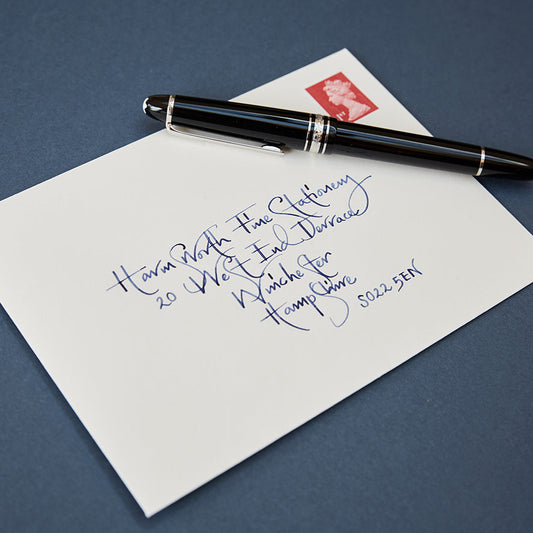 Harm Worth Fine Stationery
20 West End Terrace
Winchester
Hampshire
SO22 5EN